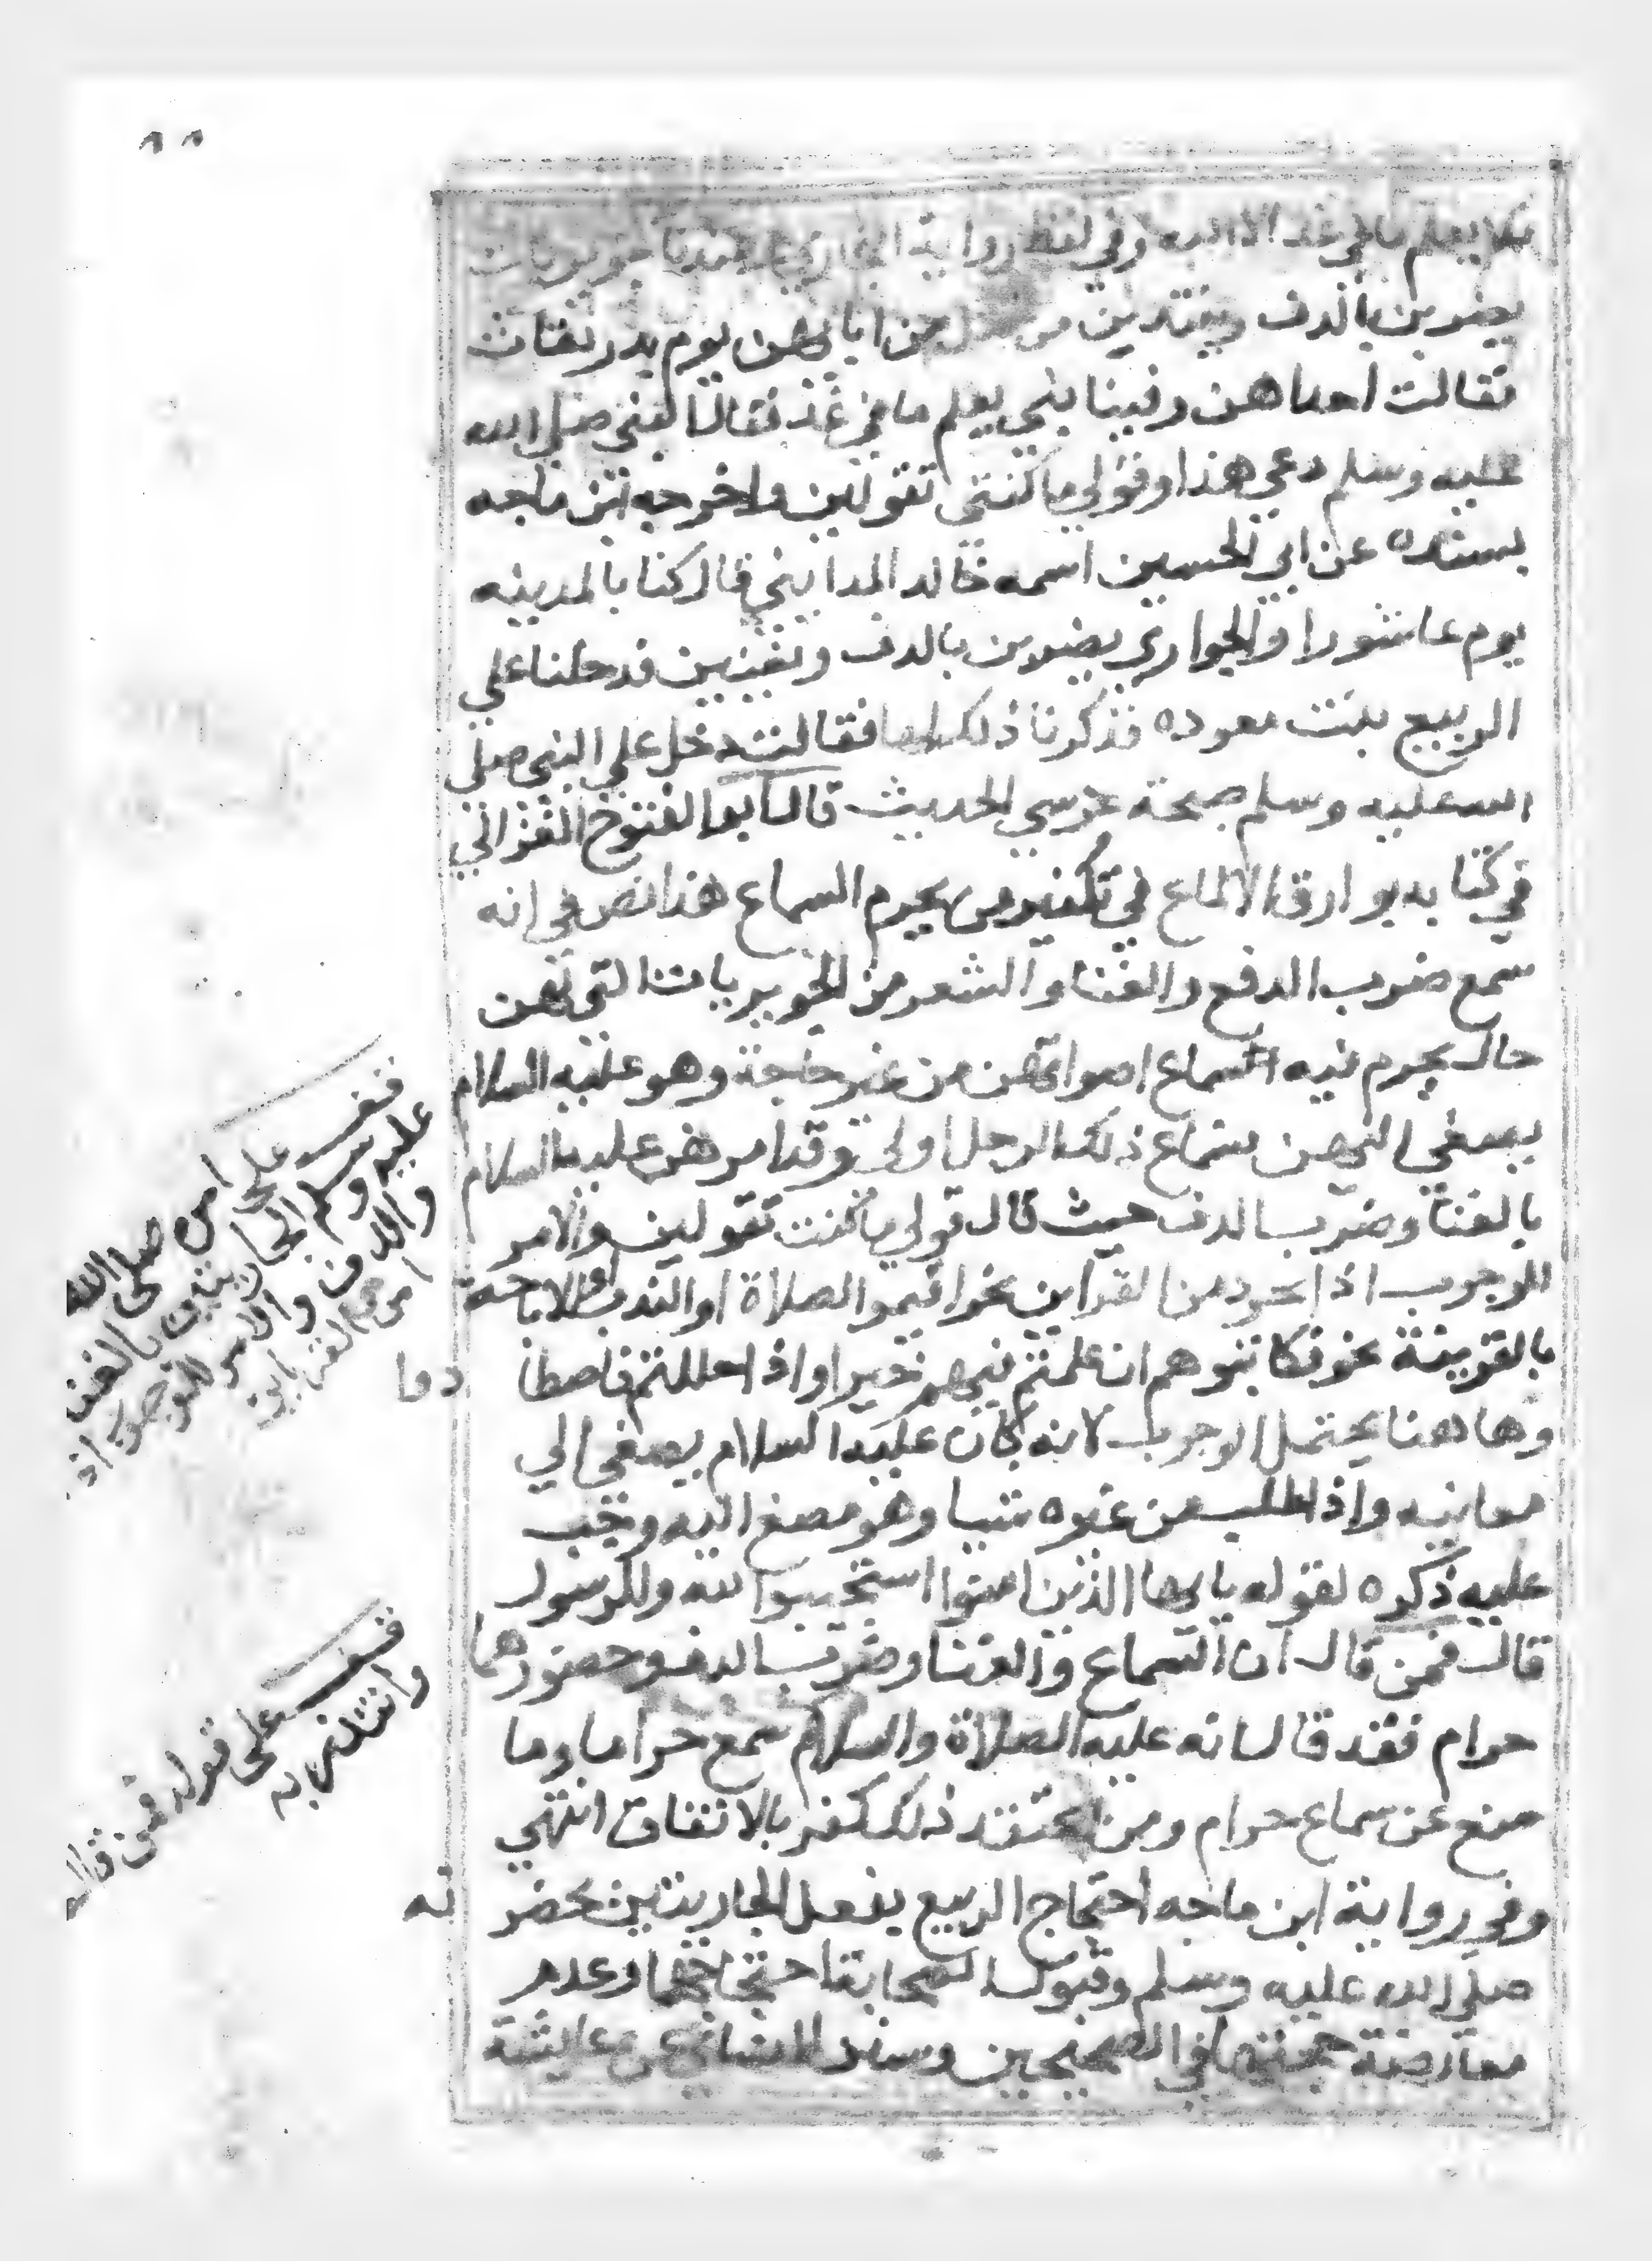 ٨٨
فلا يعلم ما في غد الا الله وفي لفظ رواية البخاري جويريات
يضربن بالدف ويندبن من ابايهن يوم بدر
فقالت احداهن وفينا نبي يعلم ما في غد فقال النبي صلي الله
عليه وسلم دعي هذا وقولي ما كنتي تقولين واخرجه ابن ماجه
بسنده عن ابي الحسين اسمه خالد المدايني قال كنا بالمدينه
يوم عاشورا والجواري يضربن بالدف وتغنين فدخلنا علي
الربيع بنت معوده فذكرنا ذلك لها فقالت دخل علي النبي صلي
الله عليه وسلم صبحة عرسي الحديث قال ابو الفتوح الغزالي
في كتابه بوارق الالماع في تكفير من يحرم السماع هذا نص في انه
سمع ضرب الدفع والغنا والشعر من الجويريات التي لهن
حال يحرم فيه السماع اصواتهن من غير حاجة وهو عليه السلام
يصغي اليهن سماع ذلك الرجل اولي وقد امرهن عليه السلام
بالغنا وضرب الدف حيث قال قولي ما كنت تقولين والامر
للوجوب اذا تجرد من القراين نحو اقيموا الصلاة او الندب او الاباحة
بالقرينة نحو فكاتبوهم ان علمتم فيهم خيرا واذا حللتم فاصطا
دوا
وهاهنا يحتمل الوجوب لانه كان عليه السلام يصغي الي
معانيه واذا طلب من غيره شيا وهو مصغ اليه وجب
عليه ذكره لقوله يايها الذين امنوا استجيبوا لله وللرسول
قال فمن قال ان السماع والغنا وضرب الدف وحضورها
حرام فقد قال انه عليه الصلاة والسلام سمع حراما وما
منع عن سماع حرام ومن اعتقد ذلك كفر بالاتفاق انتهي
وفي رواية ابن ماجه احتجاج الربيع بفعل الجاريتين بحضر
ته
صلي الله عليه وسلم وقبول الصحابة احتجاجها وعدم
معارضة حجتها في الصحيحين وسنن النساي عن عايشة
قف على امره صلى الله
عليه وسلم الجاريتين بالغنا
والدف والامر للوجوب اذا
القراين
قف على قوله فمن قال